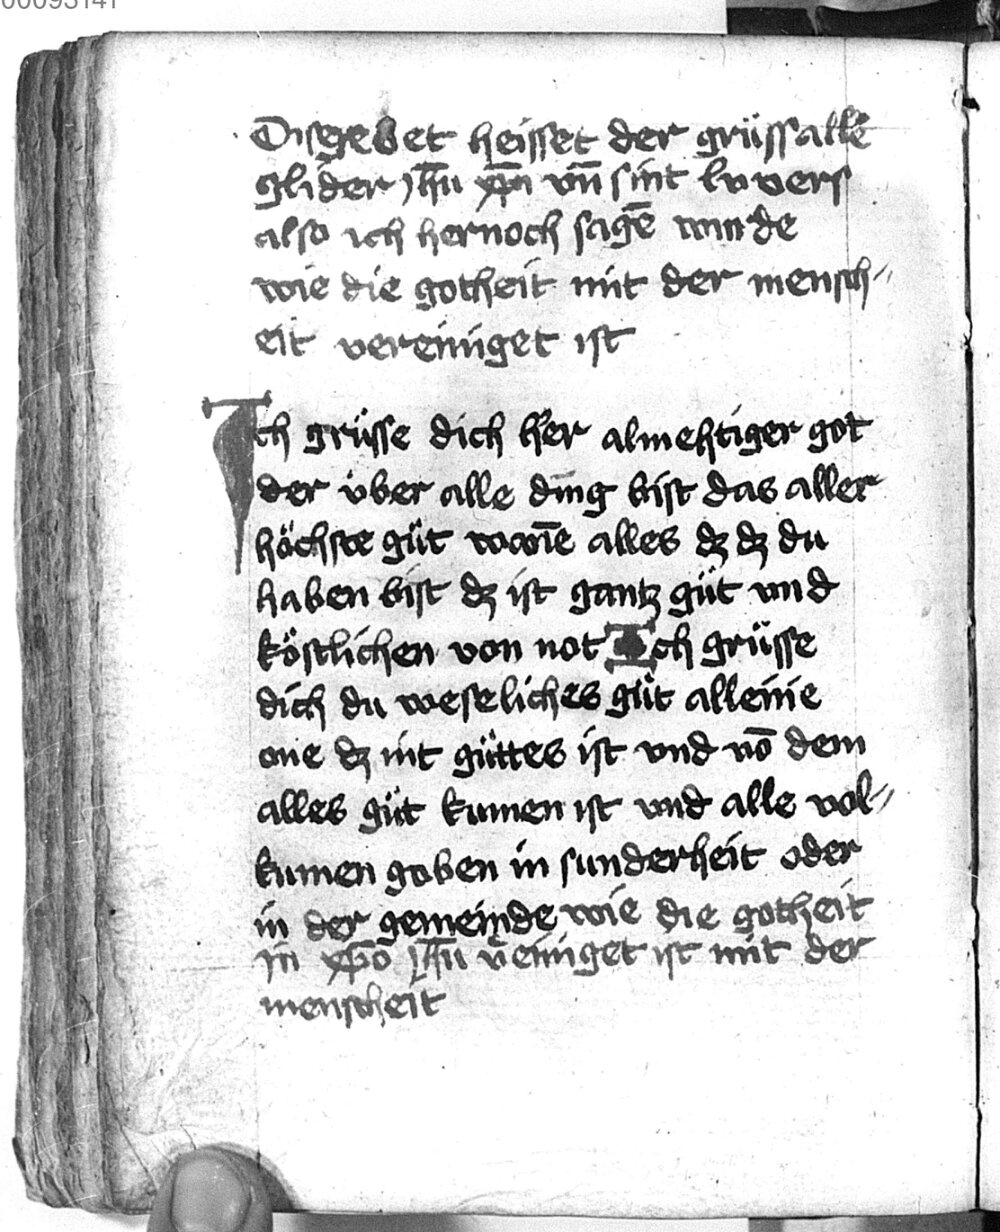 00093141
Disgebet heisset der grüssalle
glider jhũ xp̄i vn̄ sint lv vers
also ich hernoch sagē wurde
wie die gotheit mit der mensch⸗
eit vereiniget ist
Ich grüsse dich her almehtiger got
der über alle ding bist das aller
höchste güt wāne alles dz dz du
haben bist dz ist gantz güt vnd
köstlichen von not Ich grüsse
dich du weseliches güt alleinie
one dz nit güttes ist vnd vō dem
alles güt kumen ist vnd alle vol⸗
kumen goben in sunderheit oder
in der gemeinde wie die gotheit
in xp̄o jhũ v̾einiget ist mit der
menscheit